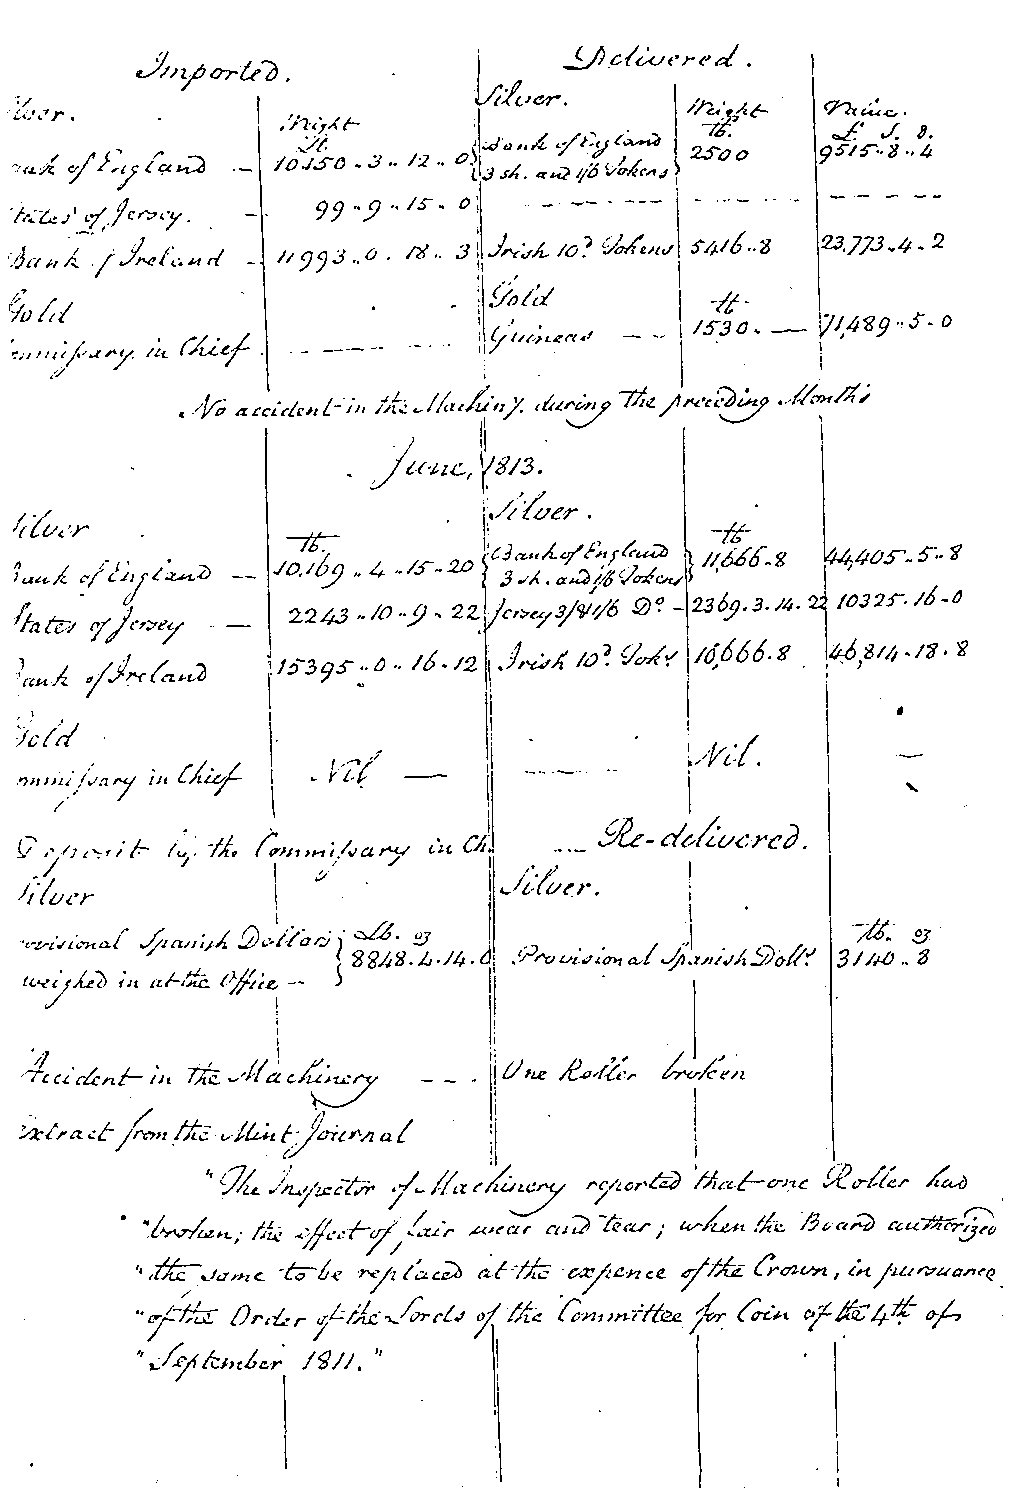 Imported. Delivered.
ilver. Silver.
Weight Weight Value.
lb. lb. £ S. D.
ank of England — 10,150 .. 3 .. 12 .. 0 { Bank of England 3 sh. and 1/6 Tokens } 2500 9515 .. 8 .. 4
tates of Jersey. — 99 .. 9 .. 15 .. 0 - - - - - - - - - - - - - - - -
Bank of Ireland — 11993 .. 0 .. 18 .. 3 Irish 10d. Tokens 5416 .. 8 23,773 .. 4 .. 2
Gold Gold lb.
ommissary in Chief - - — - - - - Guineas — — 1530. — 71,489 .. 5 .. 0
No accident in the Machiny. during the preceding Months
June, 1813.
ilver Silver.
lb. lb
Bank of England — 10,169 .. 4 .. 15 .. 20 { Bank of England 3 sh. and 1/6 Tokens } 11,666 .. 8 44,405 .. 5 .. 8
States of Jersey — 2243 .. 10 .. 9 .. 22 Jersey 3/ & 1/6 Do. — 2369 . 3 . 14 . 22 10325 .. 16 .. 0
Bank of Ireland 15395 .. 0 .. 16 .. 12 Irish 10d. Toks. 16,666 .. 8 46,814 .. 18 .. 8
Gold
ommissary in Chief Nil — - - - - - Nil. —
Deposit by the Commissary in Ch. .... Re-delivered.
ilver Silver.
ovisional Spanish Dollars } Lb. oz lb. oz
weighed in at the Office -- } 8848 . 4 . 14 . 0 Provisional Spanish Dolls. 3140 .. 8
Accident in the Machinery - - - . One Roller broken
Extract from the Mint Journal
"The Inspector of Machinery reported that one Roller had
"broken; the effect of fair wear and tear; when the Board authorized
"the same to be replaced at the expence of the Crown, in pursuance
"of the Order of the Lords of the Committee for Coin of the 4th of
"September 1811."